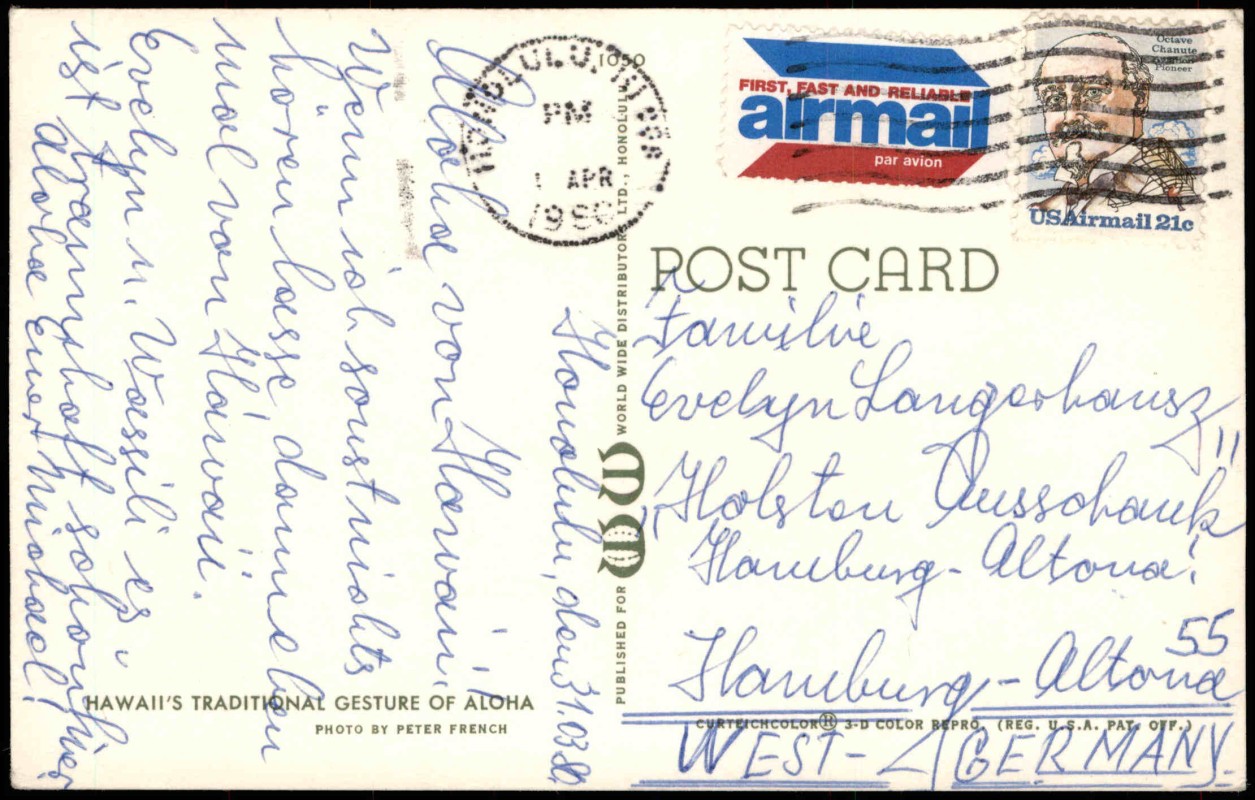 Honolulu, den 31.03.80
Aloha von Hawaii!
Wenn ich sonst nichts
hören lasse, dann eben
mal von Hawaii.
Evelyn u. Wassili es
ist traumhaft schön hier
aloha Euer Michael!
HAWAII'S TRADITIONAL GESTURE OF ALOHA
PHOTO BY PETER FRENCH
PUBLISHED FOR WORLD WIDE DISTRIBUTORS, LTD., HONOLULU
1050
HONOLULU, HI 968
PM
1 APR
1980
FIRST, FAST AND RELIABLE
airmail
par avion
Octave
Chanute
Aviation
Pioneer
USAirmail 21c
POST CARD
Familie
Evelyn Langerhansz
"Holsten Ausschank"
Hamburg-Altona!
55
Hamburg-Altona
WEST-GERMANY.
CURTEICHCOLOR® 3-D COLOR REPRO. (REG. U.S.A. PAT. OFF.)